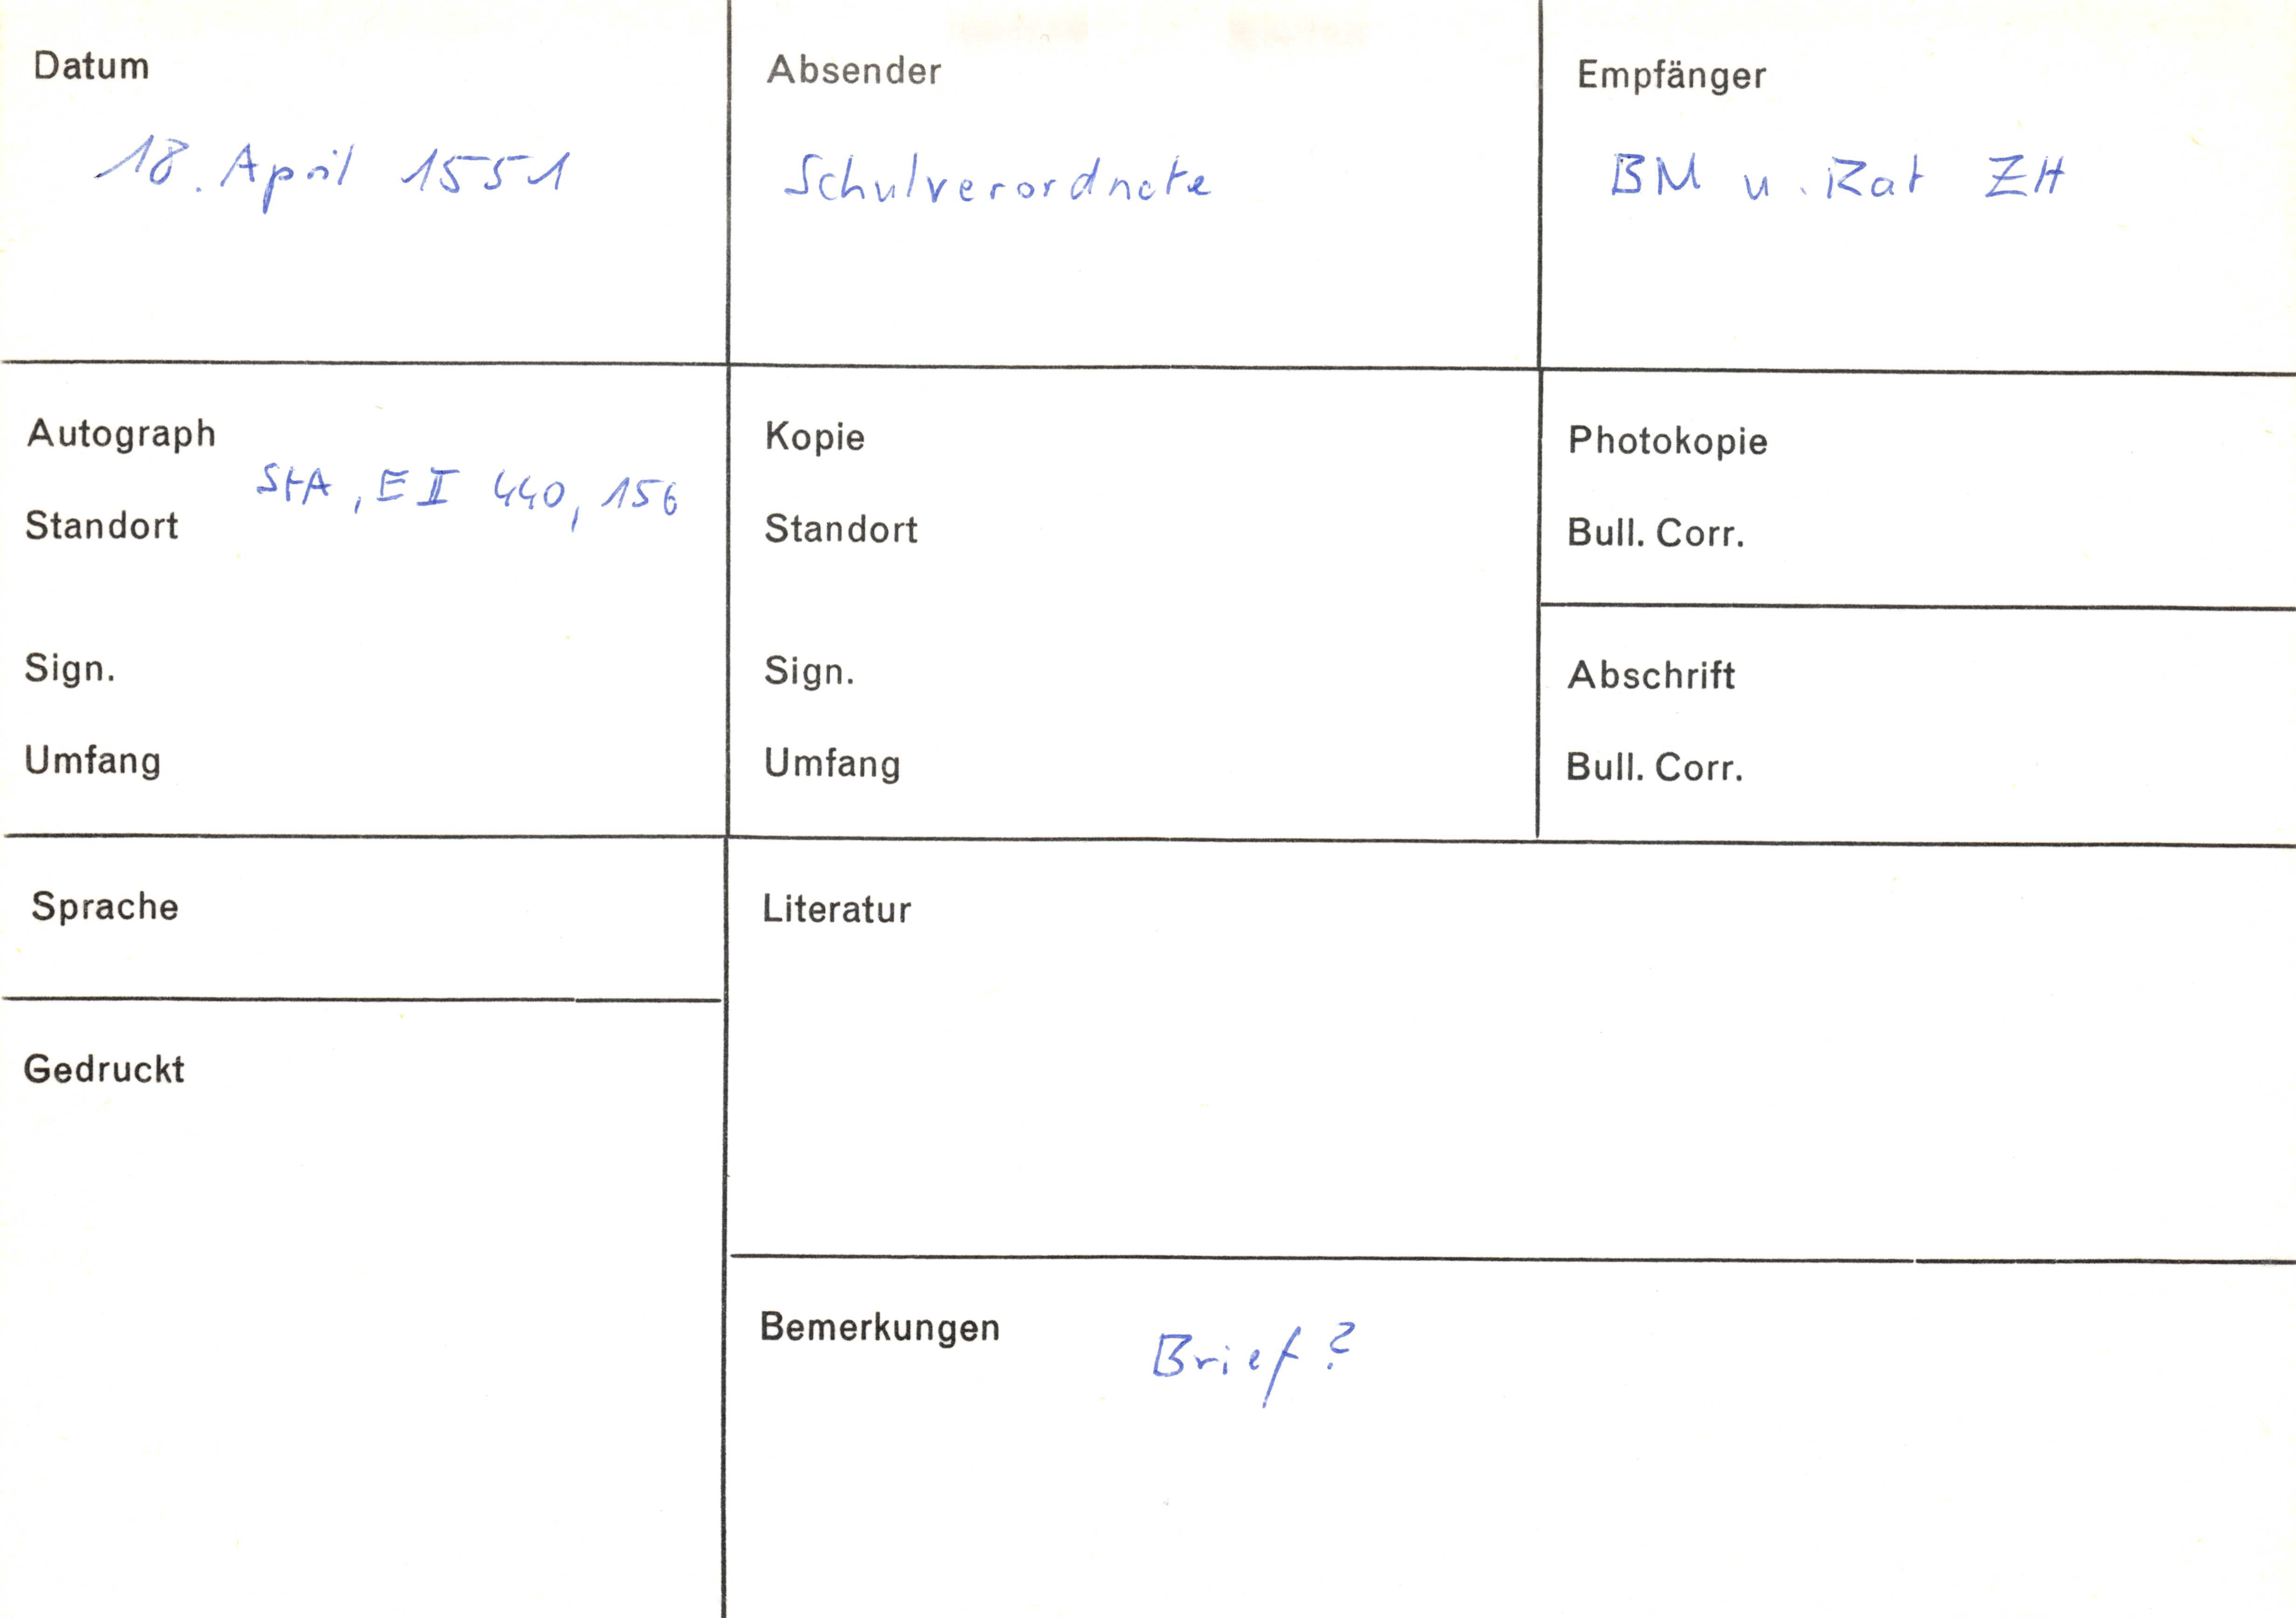 Datum
18. April 1551
Absender
Schulverordnete
Empfänger
BM u. Rat ZH
Autograph
StA, E II 440, 156
Standort
Sign.
Umfang
Kopie
Standort
Sign.
Umfang
Photokopie
Bull. Corr.
Abschrift
Bull. Corr.
Sprache
Literatur
Gedruckt
Bemerkungen
Brief?